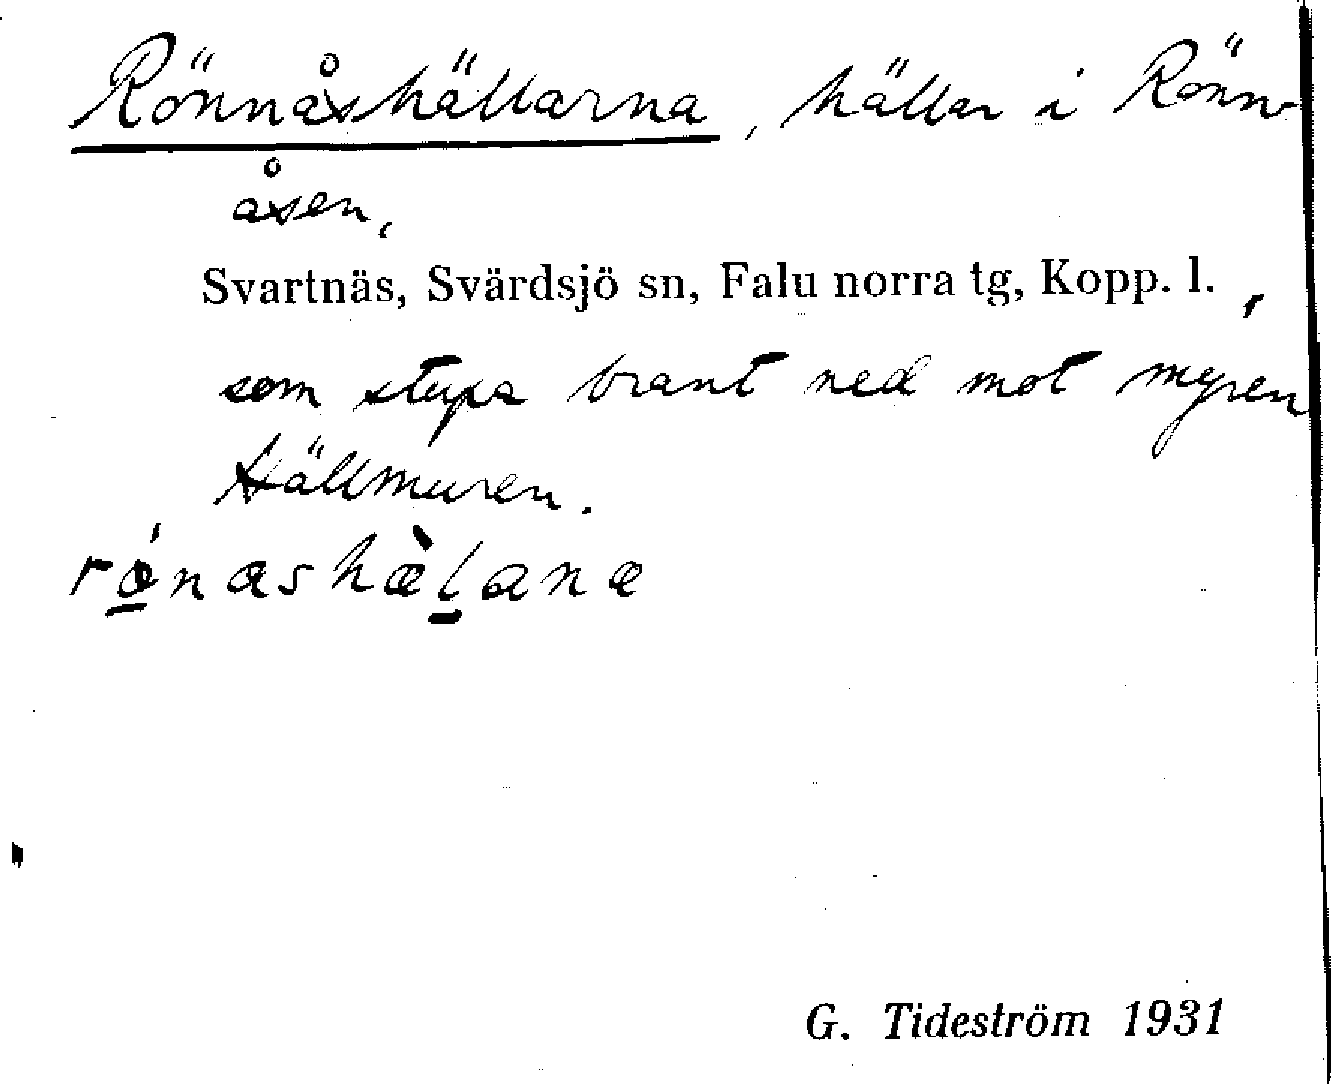 Rönnåshällarna, hällar i Rönn-
åsen,
Svartnäs, Svärdsjö sn, Falu norra tg, Kopp. l. ,
som stupa brant ned mot myren
Hällmuren.
G. Tideström 1931